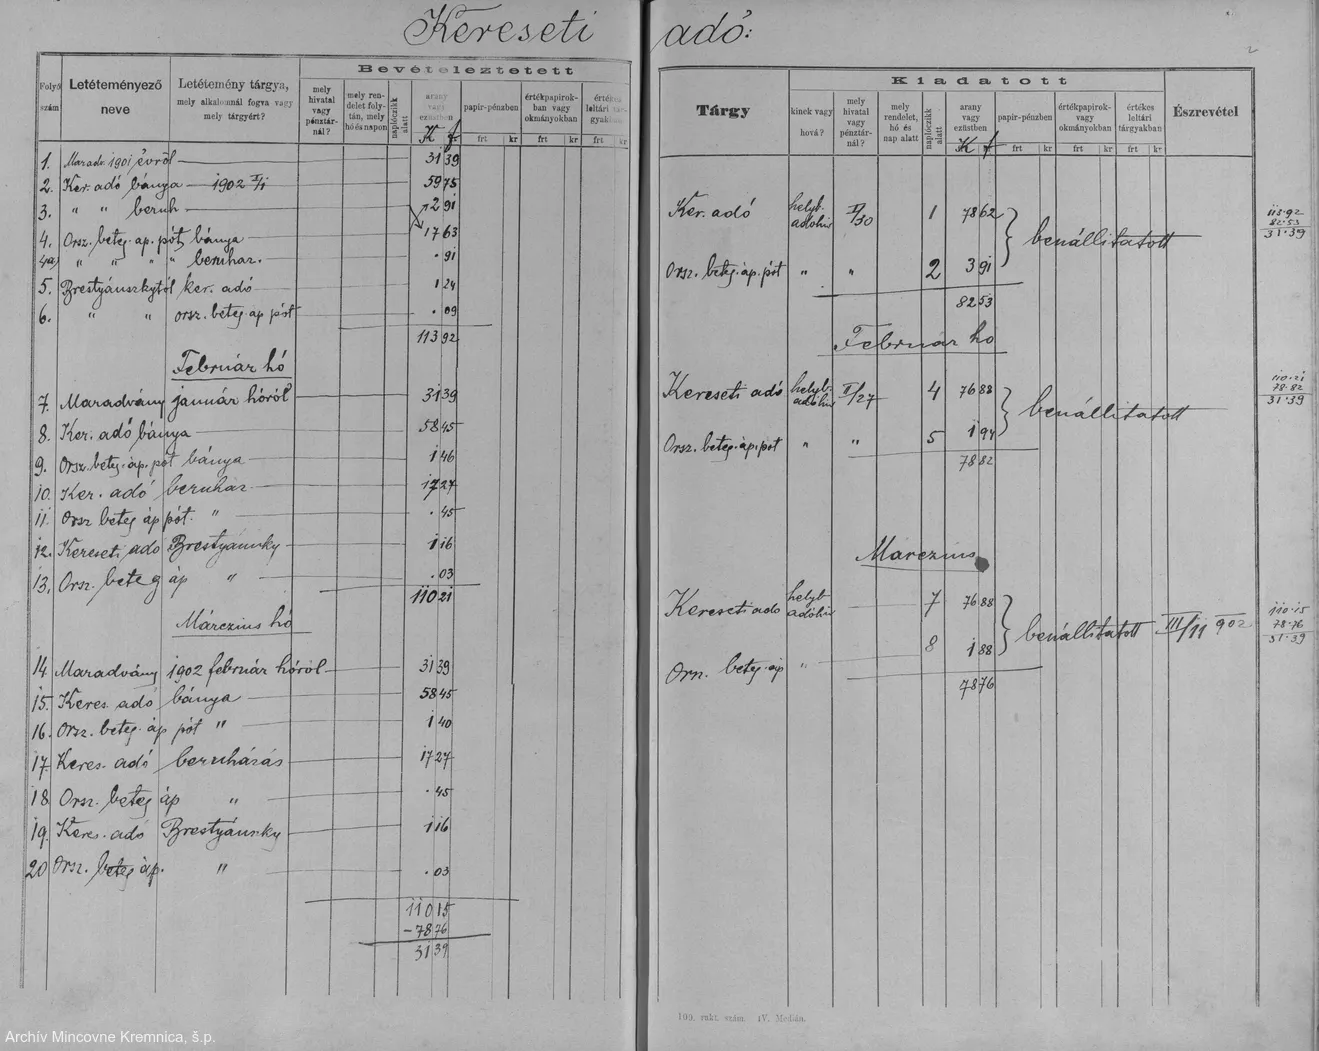 Kereseti adó:
2
Bevételeztetett
Folyó szám
Letéteményező neve
Letétemény tárgya, mely alkalomnál fogva vagy mely tárgyért?
mely hivatal vagy pénztárnál?
mely rendelet folytán, mely hó és napon
naplóczikk alatt
arany vagy ezüstben
papír-pénzben
értékpapirokban vagy okmányokban
értékes leltári tárgyakban
K f frt kr frt kr frt kr
1. Maradv. 1901 évről 31 39
2. Ker. adó bánya 1902 I/1 59 75
3. " " beruh 2 91
4. Orsz. beteg. áp. pót bánya 17 63
4a) " " " " beruhar. . 91
5. Brestyánszkytól ker. adó 1 24
6. " " orsz. beteg áp pót . 09
113 92
Február hó
7. Maradvány január hóról 31 39
8. Ker. adó bánya 58 45
9. Orsz. beteg. áp. pót bánya 1 46
10. Ker. adó beruhar. 17 27
11. Orsz beteg áp pót. " . 45
12. Kereseti adó Brestyánszky 1 16
13. Orsz. beteg áp " . 03
110 21
Márczius hó
14. Maradvány 1902 február hóról 31 39
15. Keres. adó bánya 58 45
16. Orsz. beteg. áp pót " 1 40
17. Keres. adó beruházás 17 27
18 Orsz. beteg áp " . 45
19. Keres. adó Brestyánszky 1 16
20 Orsz. beteg áp. " . 03
110 15
- 78 76
31 39
Kiadatott
Tárgy
kinek vagy hová?
mely hivatal vagy pénztárnál?
mely rendelet, hó és nap alatt
naplóczikk alatt
arany vagy ezüstben
papír-pénzben
értékpapirokban vagy okmányokban
értékes leltári tárgyakban
Észrevétel
K f frt kr frt kr frt kr
Ker. adó helyb. adóhiv I/30 1 78 62 benállitatott
113.92
82.53
31.39
Orsz. beteg. áp. pót " " 2 3 91
82 53
Február hó
Kereseti adó helyb. adóhiv II/27 4 76 88 benállitatott
110.21
78.82
31.39
Orsz. beteg. áp. pót " " 5 1 94
78 82
Márczius
Kereseti adó helyb. adóhiv 7 76 88 benállitatott III/11 902
110.15
78.76
31.39
Orsz. beteg. áp " 8 1 88
78 76
100. rakt. szám. IV. Medián.
Archív Mincovne Kremnica, š.p.